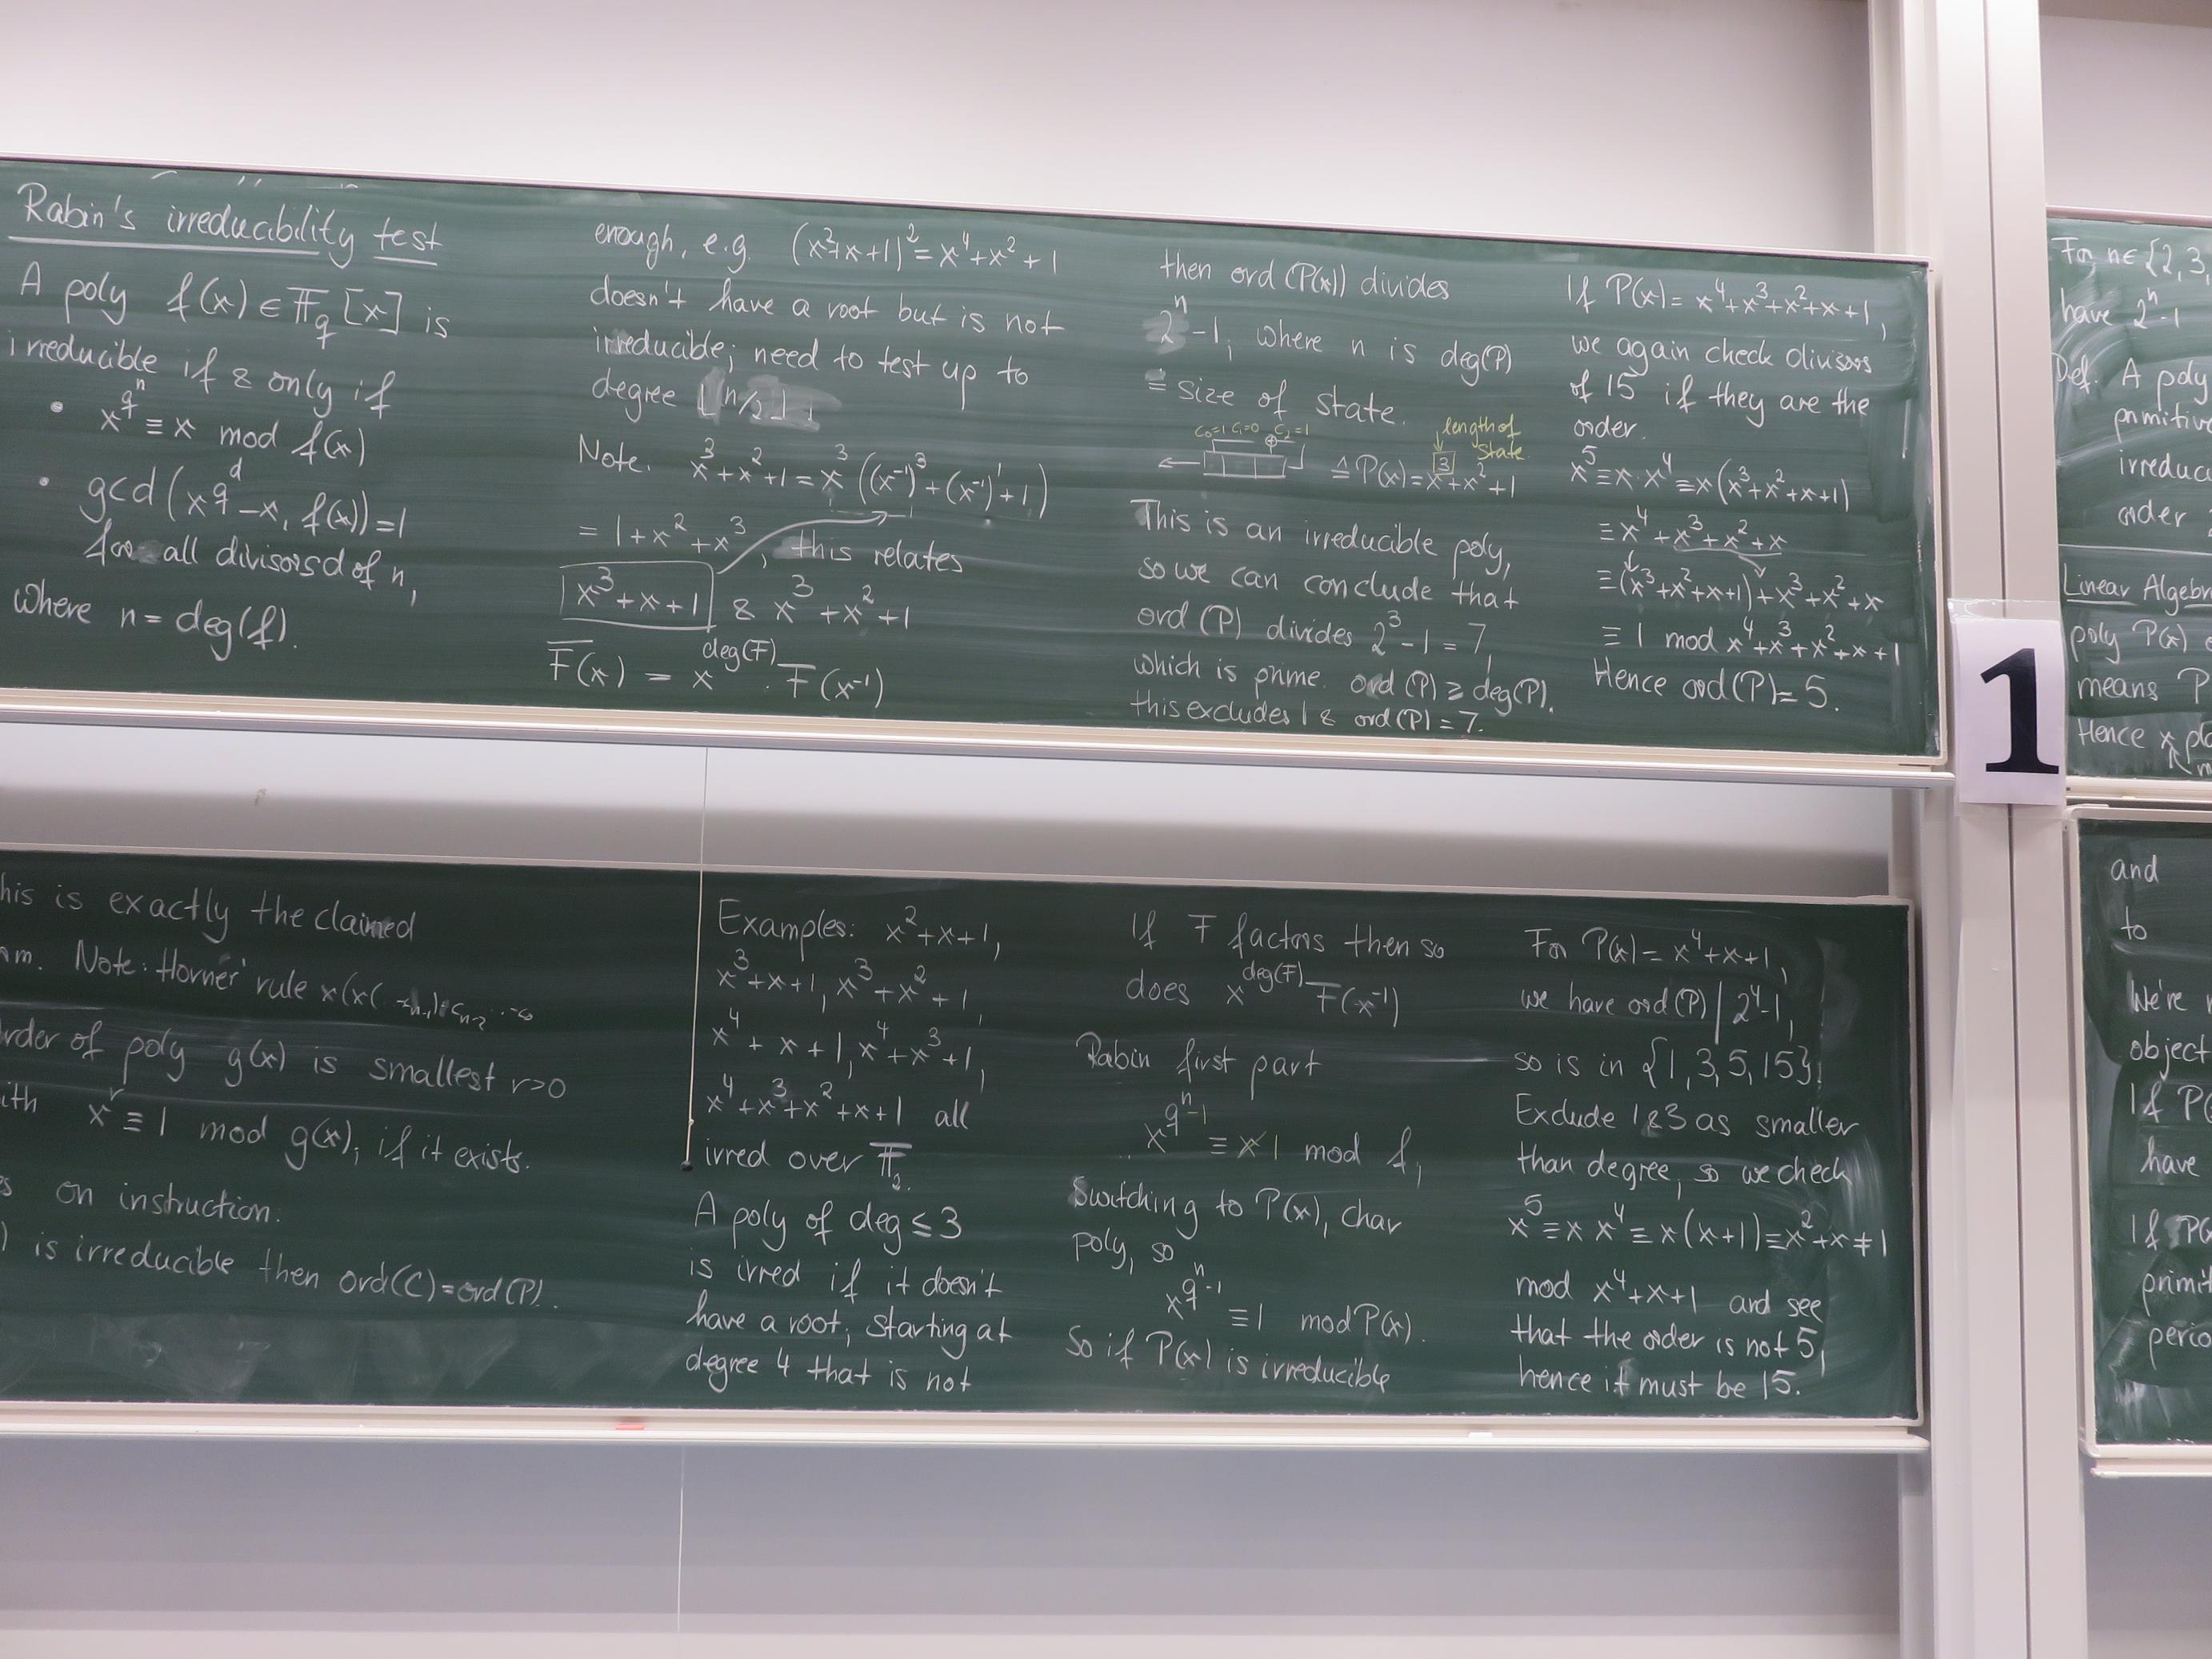 Rabin's irreducibility test
A poly f(x) ∈ 𝔽_q[x] is
irreducible if & only if
• x^{q^n} ≡ x mod f(x)
• gcd(x^{q^d} - x, f(x)) = 1
for all divisors d of n,
where n = deg(f).
enough, e.g. (x^2+x+1)^2 = x^4+x^2+1
doesn't have a root but is not
irreducible; need to test up to
degree ⌊n/2⌋.
Note. x^3+x^2+1 = x^3((x^{-1})^3+(x^{-1})^1+1)
= 1+x^2+x^3, this relates
x^3+x+1 & x^3+x^2+1
F̄(x) = x^{deg(F)} · F(x^{-1})
then ord(P(x)) divides
2^n-1, where n is deg(P)
= size of state.
length of
state
c_0=1 c_1=0 c_2=1
≙ P(x)=x^3+x^2+1
This is an irreducible poly,
so we can conclude that
ord(P) divides 2^3-1=7,
which is prime. ord(P) ≥ deg(P).
this excludes 1 & ord(P)=7.
If P(x)=x^4+x^3+x^2+x+1,
we again check divisors
of 15 if they are the
order.
x^5≡x·x^4≡x(x^3+x^2+x+1)
≡x^4+x^3+x^2+x
≡(x^3+x^2+x+1)+x^3+x^2+x
≡1 mod x^4+x^3+x^2+x+1
Hence ord(P)=5.
1
For n∈{2,3,
have 2^n-1
Def. A poly
primitive
irreduc
order
Linear Algebra
poly P(x)
means P
Hence x
his is exactly the claimed
m. Note: Horner' rule x(x(
rder of poly g(x) is smallest r>0
ith x^r ≡ 1 mod g(x), if it exists.
s on instruction.
) is irreducible then ord(C)=ord(P).
Examples: x^2+x+1,
x^3+x+1, x^3+x^2+1,
x^4+x+1, x^4+x^3+1,
x^4+x^3+x^2+x+1 all
irred over 𝔽_2.
A poly of deg ≤ 3
is irred if it doesn't
have a root; starting at
degree 4 that is not
If F factors then so
does x^{deg(F)} F(x^{-1})
Rabin first part
x^{q^n-1} ≡ x 1 mod f,
Switching to P(x), char
poly, so
x^{q^n-1} ≡ 1 mod P(x).
So if P(x) is irreducible
For P(x)=x^4+x+1,
we have ord(P) | 2^4-1,
so is in {1,3,5,15}.
Exclude 1&3 as smaller
than degree, so we check
x^5≡x x^4≡x(x+1)≡x^2+x≠1
mod x^4+x+1 and see
that the order is not 5,
hence it must be 15.
and
to
We're
object
If P(
have
If P(x
primit
perio